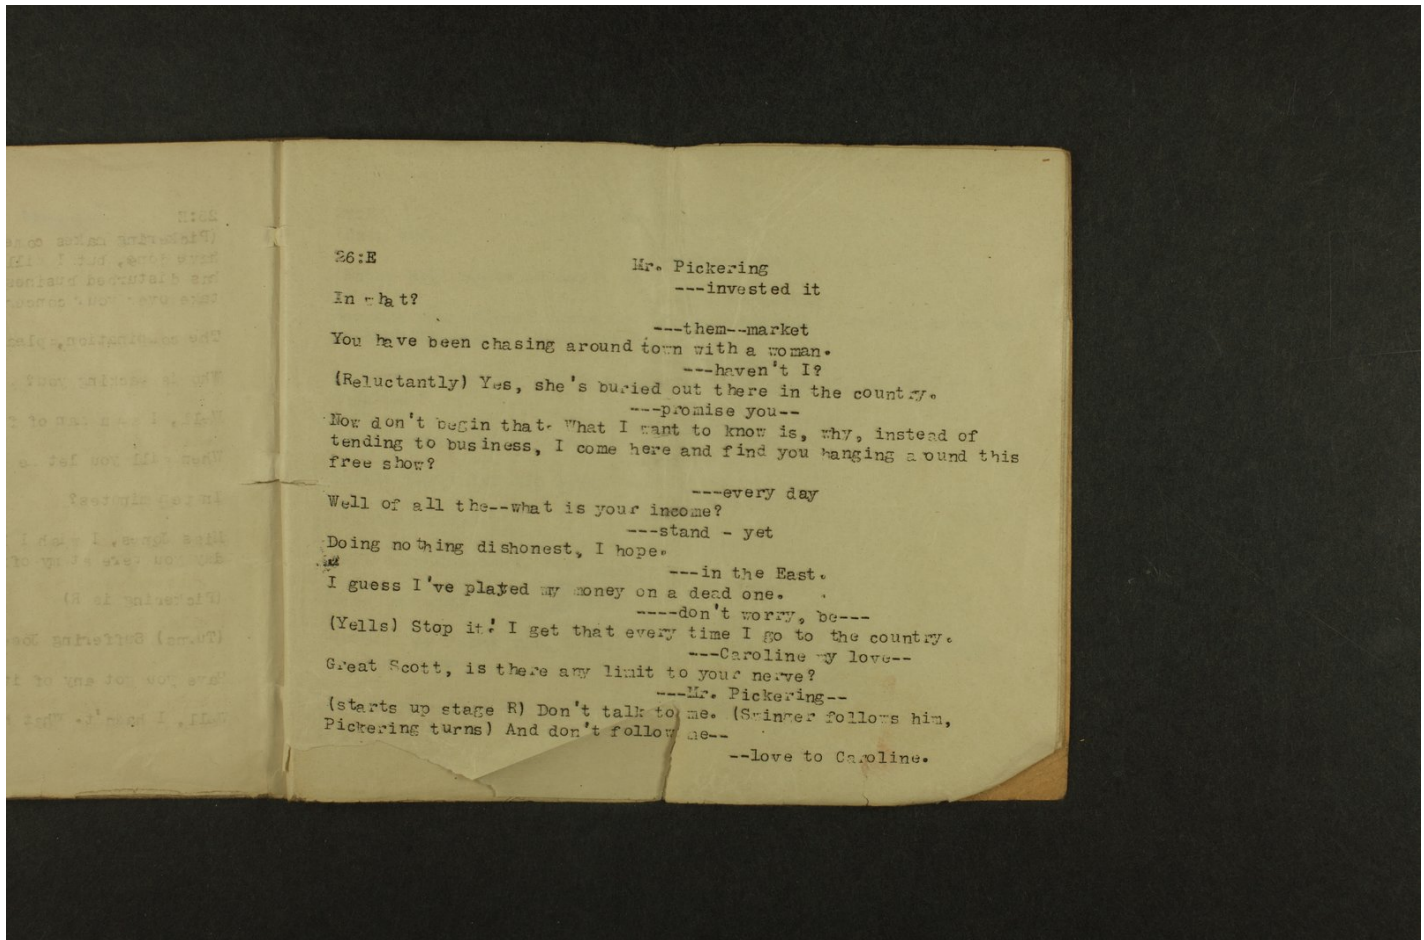 26:E
Mr. Pickering
---invested it
In what?
---them--market
You have been chasing around town with a woman.
---haven't I?
(Reluctantly) Yes, she's buried out there in the country.
---promise you--
Now don't begin that. What I want to know is, why, instead of
tending to business, I come here and find you hanging around this
free show?
---every day
Well of all the--what is your income?
---stand - yet
Doing nothing dishonest, I hope.
---in the East.
I guess I've played my money on a dead one.
----don't worry, be---
(Yells) Stop it! I get that every time I go to the country.
---Caroline my love--
Great Scott, is there any limit to your nerve?
---Mr. Pickering--
(starts up stage R) Don't talk to me. (Swinger follows him,
Pickering turns) And don't follow me--
--love to Caroline.